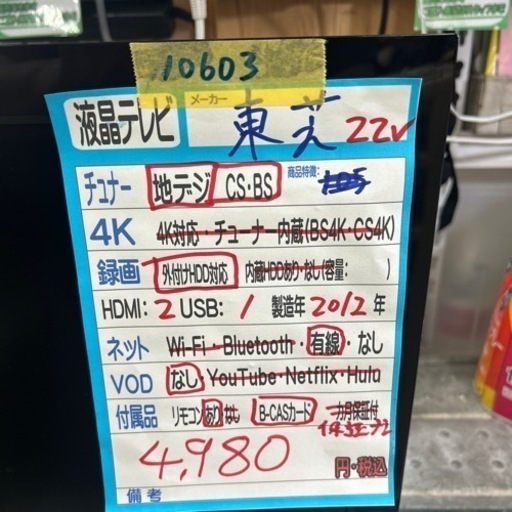 10603
液晶テレビ メーカー 東芝 22v
チューナー 地デジ CS・BS 商品特徴：
4K 4K対応・チューナー内蔵(BS4K・CS4K)
録画 外付けHDD対応 内蔵HDDあり・なし(容量: )
HDMI: 2 USB: 1 製造年 2012年
ネット Wi-Fi・Bluetooth・有線・なし
VOD なし YouTube・Netflix・Hulu
付属品 リモコンあり・なし B-CASカード 一カ月保証付
4,980 円・税込
備考